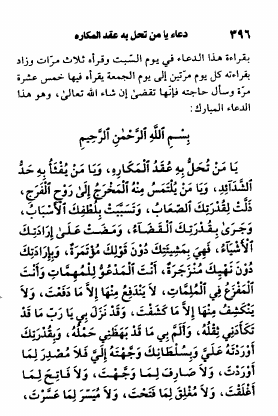 ٣٩٦ دعاء يا من تحل به عقد المكاره
بقراءة هذا الدعاء في يوم السّبت ويقرأه ثلاث مرّات وزاد
بقراءته كل يوم مرّتين إلى يوم الجمعة يقرأه فيها خمس عشرة
مرّة وسأل حاجته فإنّها تقضىٰ إن شاء الله تعالىٰ، وهو هذا
الدعاء المبارك:
بِسْمِ اللَّهِ الرَّحْمٰنِ الرَّحِيمِ
يَا مَنْ تُحَلُّ بِهِ عُقَدُ الْمَكَارِهِ، وَيَا مَنْ يُفْثَأُ بِهِ حَدُّ
الشَّدَائِدِ، وَيَا مَنْ يُلْتَمَسُ مِنْهُ الْمَخْرَجُ إِلَىٰ رَوْحِ الْفَرَجِ،
ذَلَّتْ لِقُدْرَتِكَ الصِّعَابُ، وَتَسَبَّبَتْ بِلُطْفِكَ الْأَسْبَابُ،
وَجَرىٰ بِقُدْرَتِكَ الْقَضَاءُ، وَمَضَتْ عَلَىٰ إِرَادَتِكَ
الْأَشْيَاءُ، فَهِيَ بِمَشِيَّتِكَ دُونَ قَوْلِكَ مُؤْتَمِرَةٌ، وَبِإِرَادَتِكَ
دُونَ نَهْيِكَ مُنْزَجِرَةٌ، أَنْتَ الْمَدْعُوُّ لِلْمُهِمَّاتِ وَأَنْتَ
الْمَفْزَعُ فِي الْمُلِمَّاتِ، لَا يَنْدَفِعُ مِنْهَا إِلَّا مَا دَفَعْتَ، وَلَا
يَنْكَشِفُ مِنْهَا إِلَّا مَا كَشَفْتَ، وَقَدْ نَزَلَ بِي يَا رَبِّ مَا قَدْ
تَكَأَّدَنِي ثِقْلُهُ، وَأَلَمَّ بِي مَا قَدْ بَهَظَنِي حَمْلُهُ، وَبِقُدْرَتِكَ
أَوْرَدْتَهُ عَلَيَّ وَبِسُلْطَانِكَ وَجَّهْتَهُ إِلَيَّ فَلَا مُصْدِرَ لِمَا
أَوْرَدْتَ، وَلَا صَارِفَ لِمَا وَجَّهْتَ، وَلَا فَاتِحَ لِمَا
أَغْلَقْتَ، وَلَا مُغْلِقَ لِمَا فَتَحْتَ، وَلَا مُيَسِّرَ لِمَا عَسَّرْتَ،